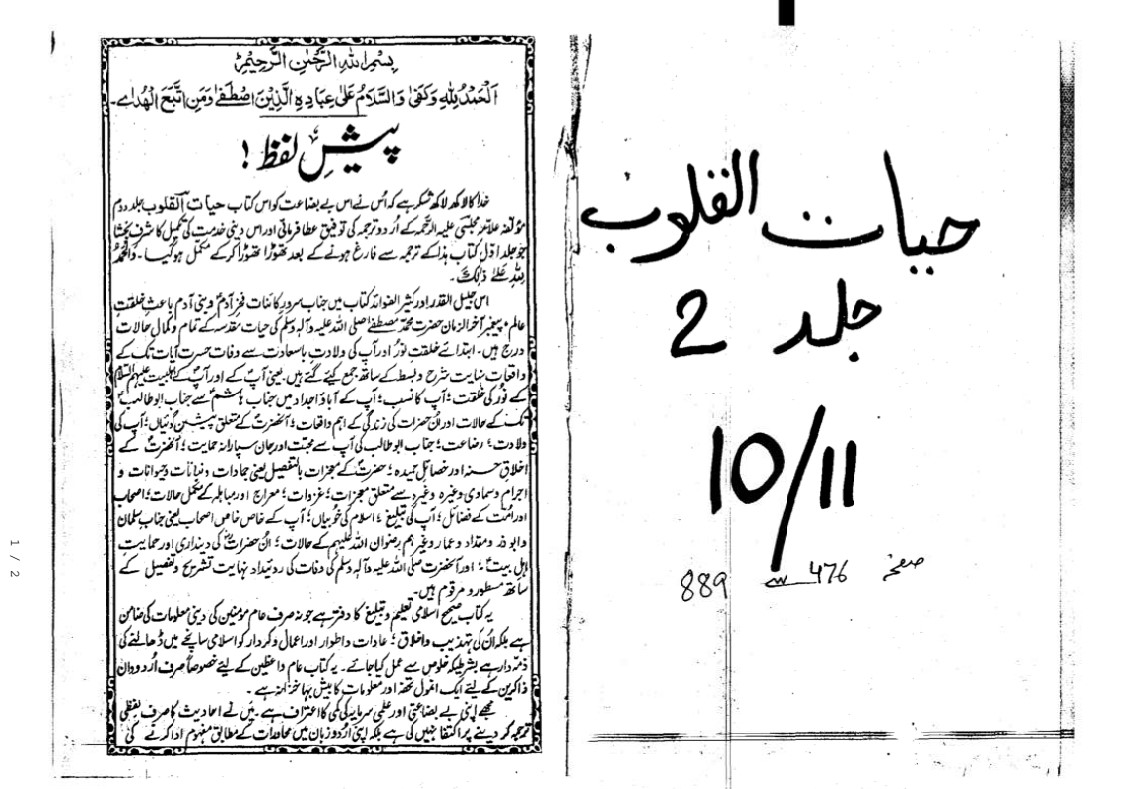 حیات القلوب
جلد 2
10/11
صفحہ 476 سے 889
بسم اللہ الرحمٰن الرحیم
الحمد للہ وکفیٰ والسلام علیٰ عبادہ الذین اصطفیٰ ومن اتبع الھداے۔
پیش لفظ !
خدا کا لاکھ لاکھ شکر ہے کہ اُس نے اس بے بضاعت کو اس کتاب حیات القلوب جلد دوم
مؤلفہ علامہ مجلسی علیہ الرحمہ کے اُردو ترجمہ کی توفیق عطا فرمائی اور اس دینی خدمت کی تکمیل کا شرف بخشا
جو جلد اوّل کتاب ہذا کے ترجمہ سے فارغ ہونے کے بعد تھوڑا تھوڑا کر کے مکمل ہو گیا۔ والحمد
للہ علیٰ ذٰلک۔
اس جلیل القدر اور کثیر الفوائد کتاب میں جناب سرورِ کائنات فخرِ آدمؑ و بنی آدم باعثِ خلقتِ
عالم، پیغمبر آخر الزمان حضرت محمد مصطفےٰ صلی اللہ علیہ وآلہ وسلم کی حیات مقدسہ کے تمام و کمال حالات
درج ہیں۔ ابتدائے خلقتِ نورؐ اور آپ کی ولادتِ باسعادت سے وفات حسرت آیات تک کے
واقعات نہایت شرح و بسط کے ساتھ جمع کیئے گئے ہیں۔ یعنی آپؐ کے اور آپؐ کے اہلبیت علیہم السلام
کے نور کی خلقت؛ آپ کا نسب؛ آپ کے آباؤ اجداد میں جناب ہاشمؑ سے جناب ابو طالبؑ
تک کے حالات اور اُن حضرات کی زندگی کے اہم واقعات؛ آنحضرتؐ کے متعلق پیشن گوئیاں؛ آپ کی
ولادت؛ رضاعت؛ جناب ابو طالب کی آپ سے محبت اور جان سپارانہ حمایت؛ آنحضرتؐ کے
اخلاقِ حسنہ اور خصائلِ حمیدہ؛ حضرتؐ کے معجزات بالتفصیل یعنی جمادات و نباتات و حیوانات و
اجرام و سماوی وغیرہ وغیرہ سے متعلق معجزات؛ غزوات؛ معراج اور مباہلہ کے مکمل حالات؛ اصحاب
اور اُمت کے فضائل؛ آپ کی تبلیغ؛ اسلام کی خوبیاں؛ آپ کے خاص خاص اصحاب یعنی جناب سلمان
و ابو ذر و مقداد و عمار وغیرہم رضوان اللہ علیہم کے حالات؛ اُن حضراتؓ کی دینداری اور حمایتِ
اہل بیتؑ؛ اور آنحضرت صلی اللہ علیہ وآلہ وسلم کی وفات کی روئیداد نہایت تشریح و تفصیل کے
ساتھ مسطور و مرقوم ہیں۔
یہ کتاب صحیح اسلامی تعلیم و تبلیغ کا دفتر ہے جو نہ صرف عام مؤمنین کی دینی معلومات کی ضامن
ہے بلکہ اُن کی تہذیب و اخلاق؛ عادات و اطوار اور اعمال و کردار کو اسلامی سانچے میں ڈھالنے کی
ذمہ دار ہے بشرطیکہ خلوص سے عمل کیا جائے۔ یہ کتاب عام واعظین کے لیئے خصوصاً صرف اُردو دان
ذاکرین کے لیئے ایک انمول تحفہ اور معلومات کا بیش بہا خزانہ ہے۔
مجھے اپنی بے بضاعتی اور علمی سرمایہ کی کمی کا اعتراف ہے۔ میں نے احادیث کا صرف لفظی
ترجمہ کر دینے پر اکتفا نہیں کی ہے بلکہ اپنی اُردو زبان میں محاورات کے مطابق مفہوم ادا کرنے کی
1 / 2